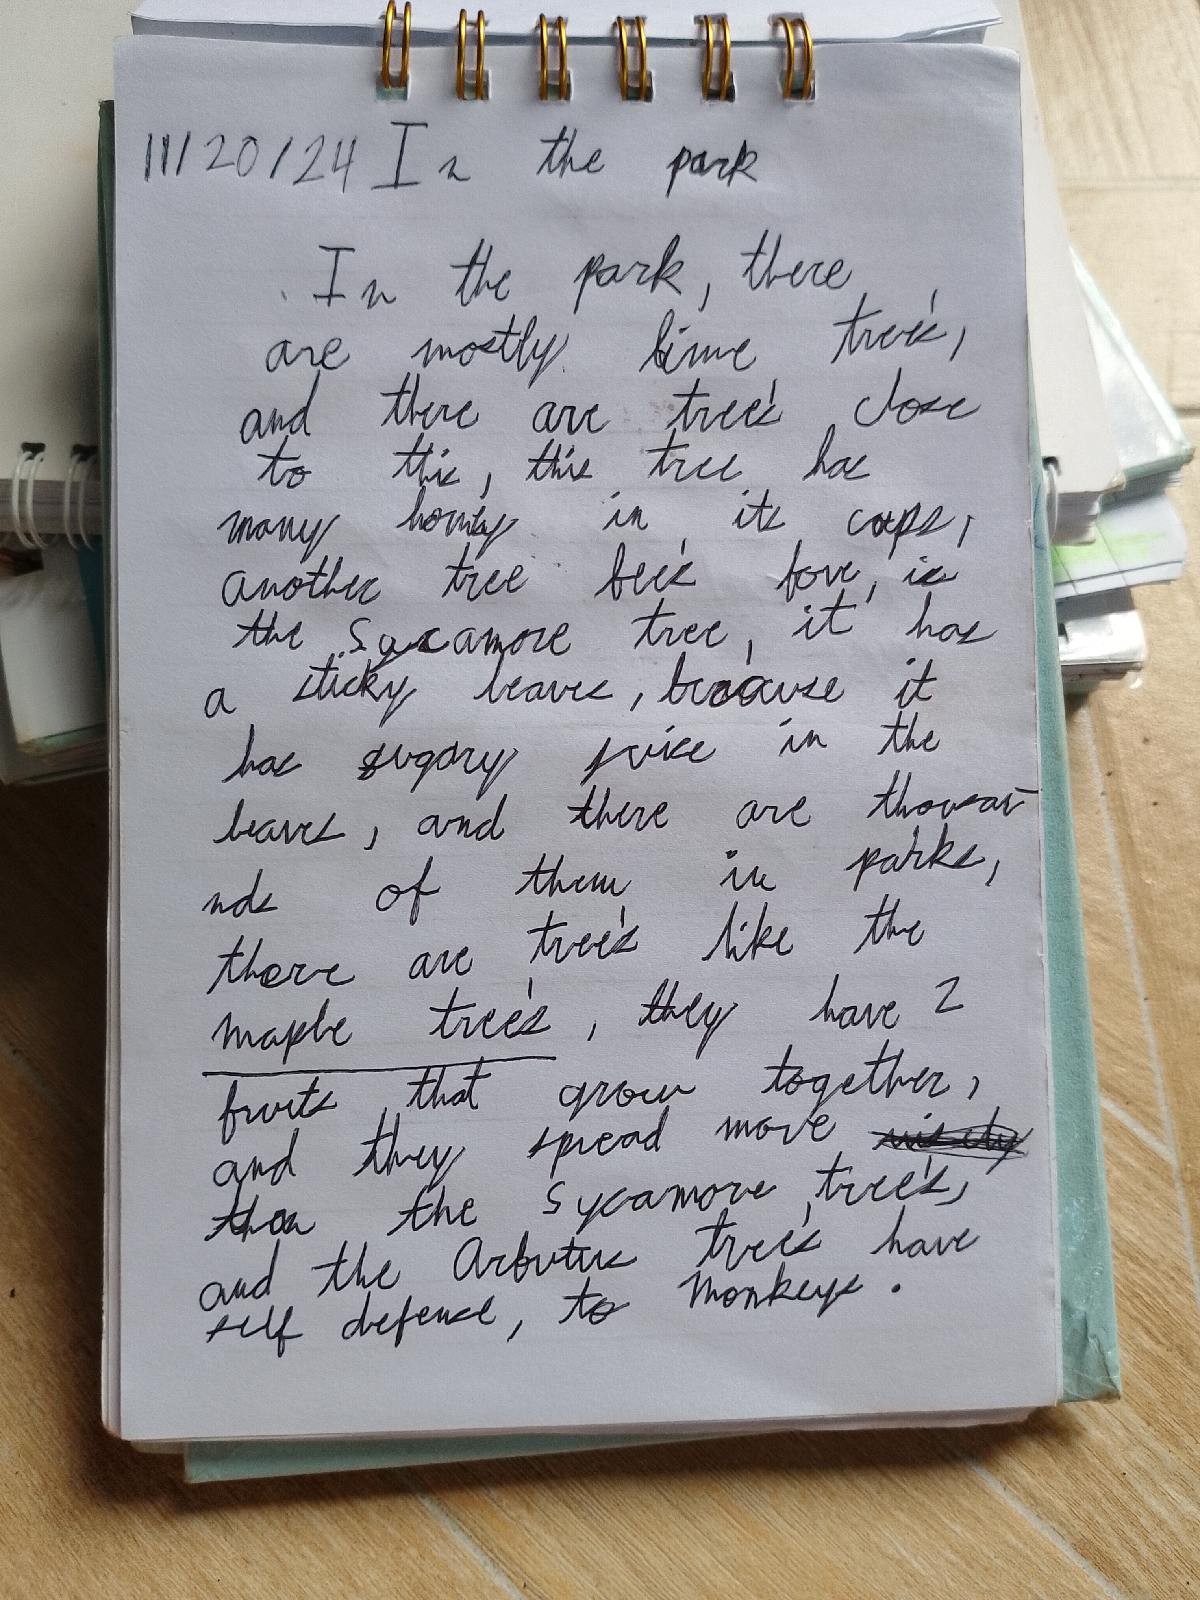 11/20/24 In the park
In the park, there
are mostly lime tree's,
and there are tree's close
to this, this tree has
many honey in its cups,
another tree bee's love, is
the Sycamore tree, it has
a sticky leaves, because it
has sugary juice in the
leaves, and there are thousan
nds of them in parks,
there are tree's like the
maple tree's, they have 2
fruits that grow together,
and they spread more
than the Sycamore tree's,
and the Arbutus tree's have
self defense, to monkeys.